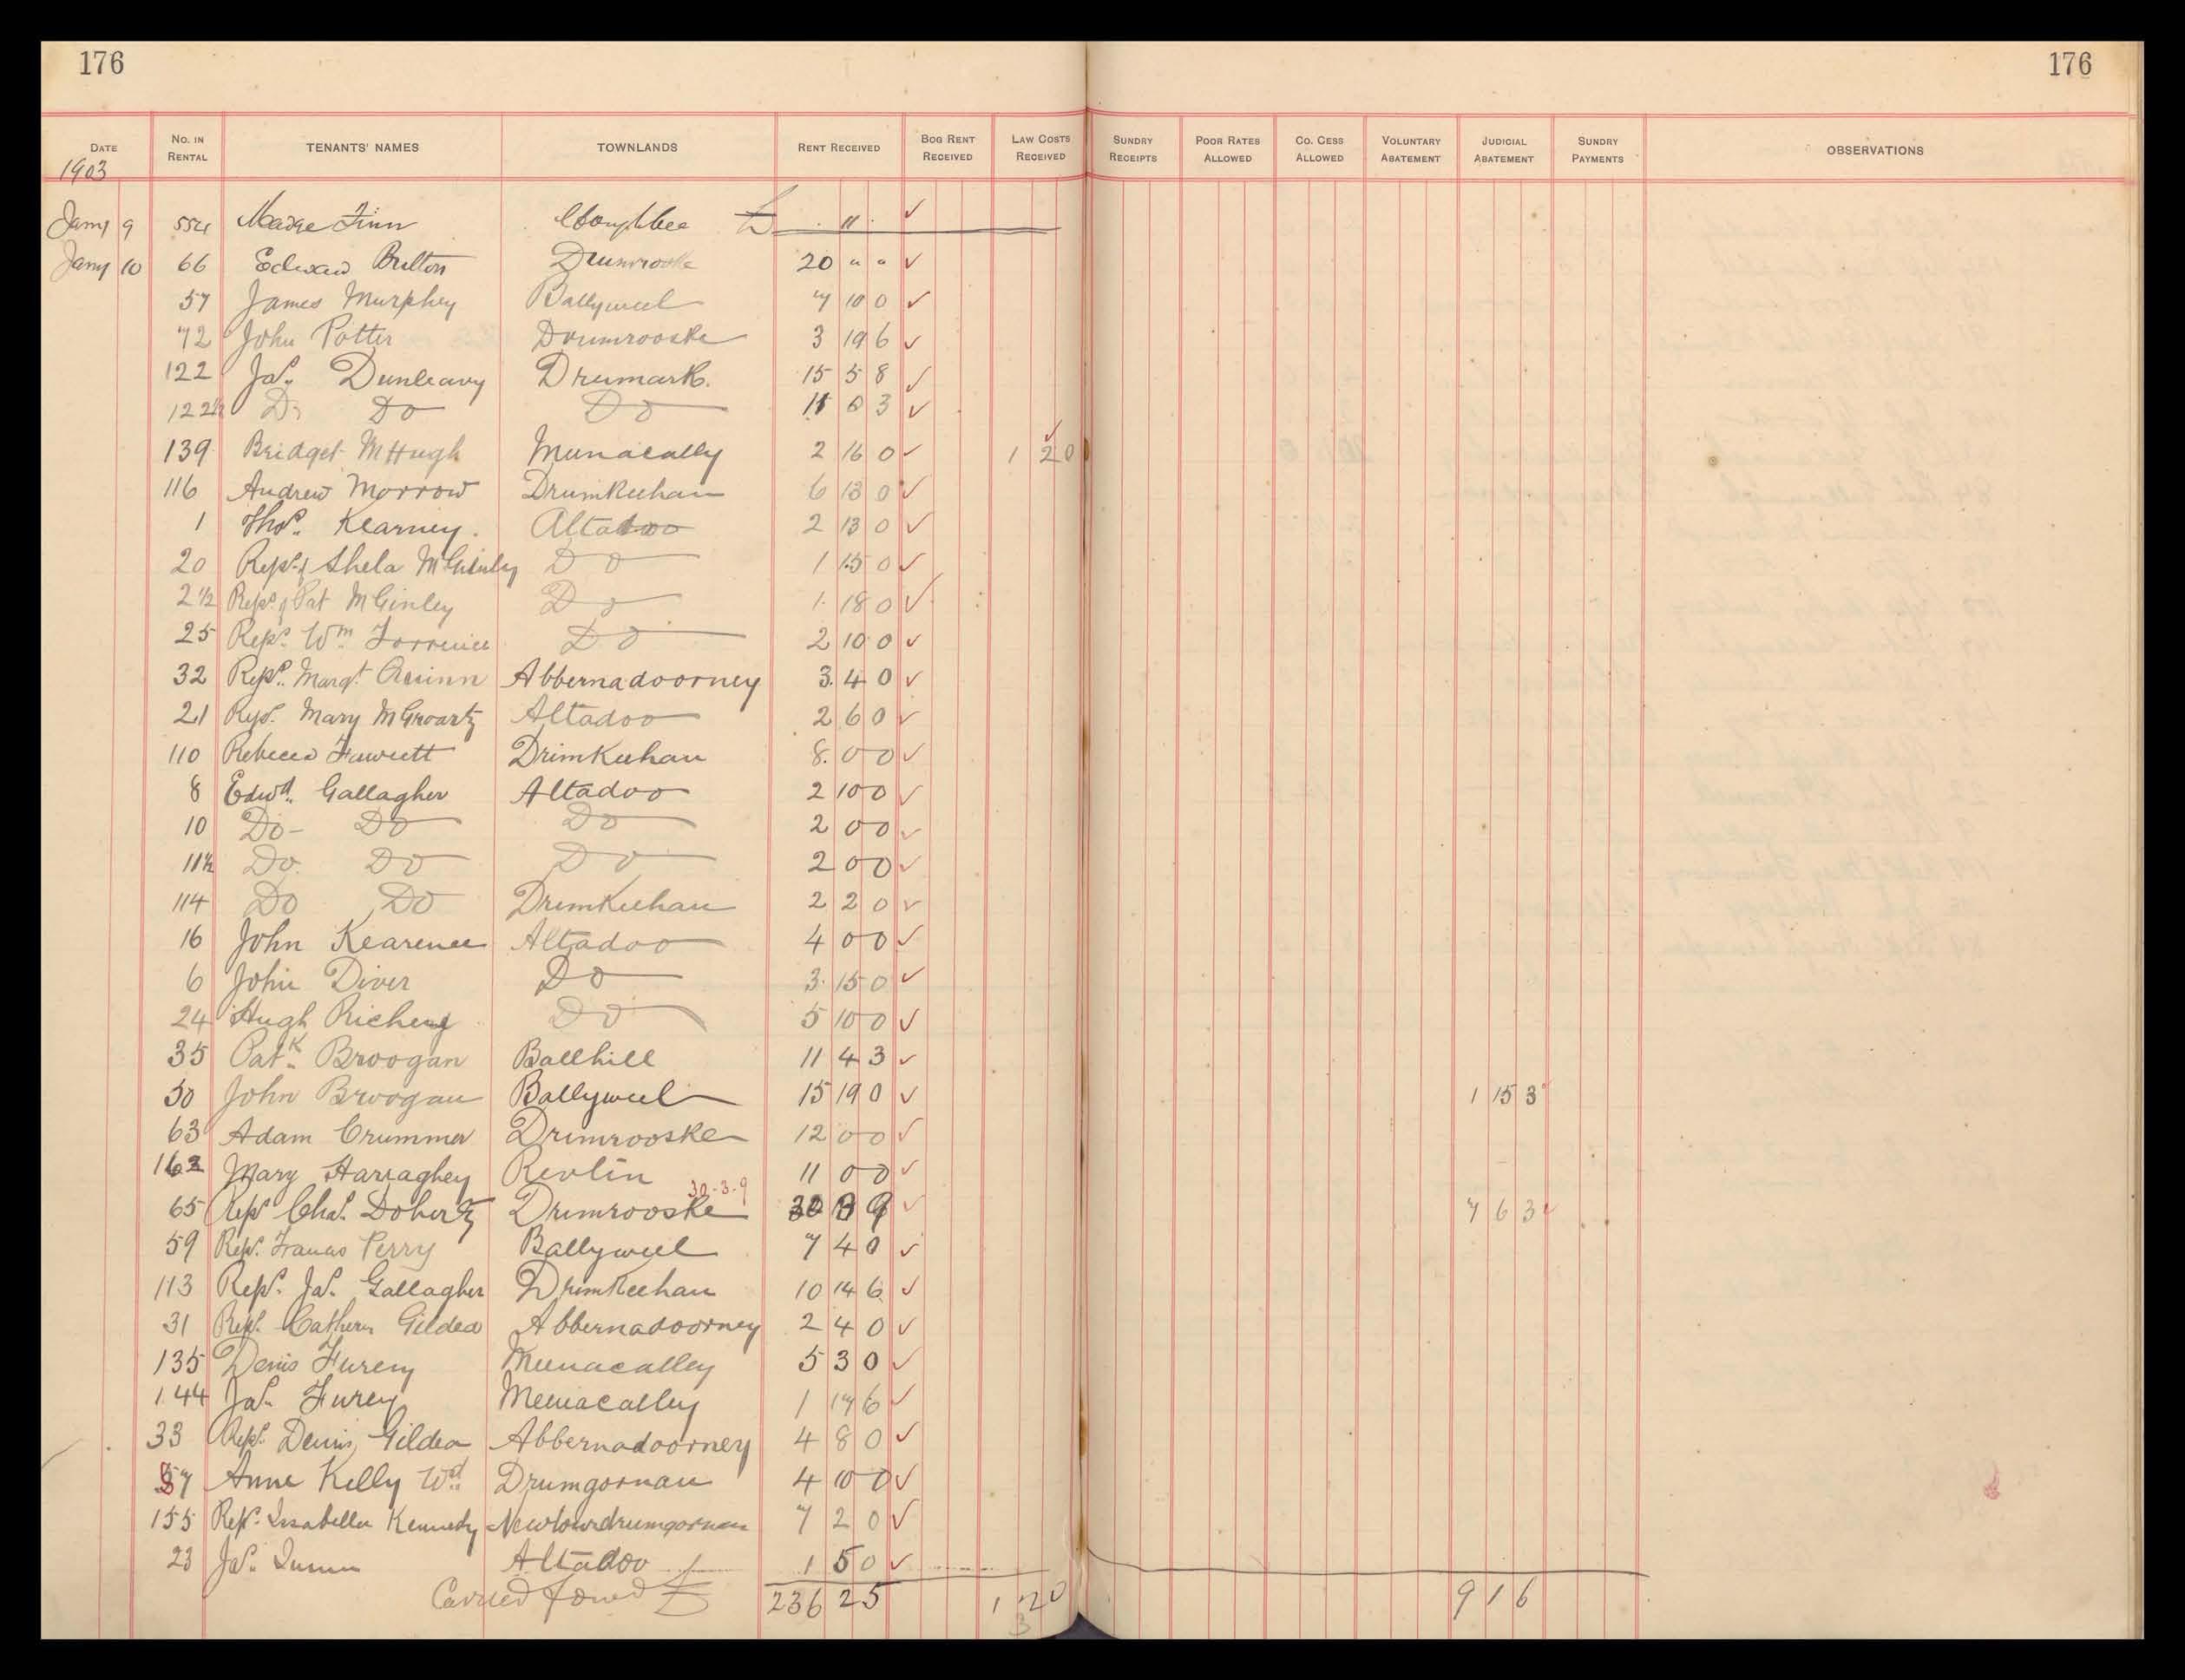 176 176
DATE No. IN RENTAL TENANTS' NAMES TOWNLANDS RENT RECEIVED BOG RENT RECEIVED LAW COSTS RECEIVED SUNDRY RECEIPTS POOR RATES ALLOWED CO. CESS ALLOWED VOLUNTARY ABATEMENT JUDICIAL ABATEMENT SUNDRY PAYMENTS OBSERVATIONS
1903
Jany 9 Madge Finn £ . " .
Jany 10 66 Edward Britton Drumrooske 20 " "
57 James Murphey Ballyweel 7 10 0
72 John Potter Drumrooske 3 19 6
122 Jas. Dunleavy Drumark. 15 5 8
122½ Do Do Do 0 3
139 Bridget McHugh Munacally 2 16 0 1 2 0
116 Andrew Morrow Drumkeehan 6 13 0
1 Thos. Kearney. Altadoo 2 13 0
20 Reps. of Shela McGinley Do 1 15 0
2½ Reps of Pat McGinley Do 1 18 0
25 Reps. Wm Do 2 10 0
32 Reps. Margt. Quinn Abbernadoorney 3 4 0
21 Reps. Mary McGroarty Altadoo 2 6 0
110 Rebecca Fawcett Drimkeehan 8. 0 0
8 Edwd. Gallagher Altadoo 2 10 0
10 Do- Do Do 2 0 0
11½ Do. Do Do 2 0 0
114 Do Do Drumkeehan 2 2 0
16 John Kearence Altadoo 4 0 0
6 John Diver Do 3 15 0
24 Hugh Richey Do 5 10 0
35 Patk. Broogan Ballhill 11 4 3
50 John Broogan Ballyweel 15 19 0 1 15 3
63 Adam Crummer Drimrooske 12 0 0
162 Mary Harraghey Revlin 11 0 0
30-3-9
65 Reps Chas. Doherty Drimrooske 30 3 9 7 6 3
59 Reps. Francis Perry Ballyweel 7 4 0
113 Reps. Jas. Gallagher Drimkeehan 10 14 6
31 Reps. Cathern Gildea Abbernadoorney 2 4 0
135 Denis Furey Meenacalley 5 3 0
144 Jas. Furey Meenacalley 1 17 6
33 Reps. Denis Gildea Abbernadoorney 4 8 0
87 Anne Kelly Wd. Drumgornan 4 10 0
155 Reps. Issabella Kennedy Newtowndrumgornan 7 2 0
23 Jas. Altadoo 1 5 0
Carried Forwd £ 236 2 5 1 2 0 9 1 6
3